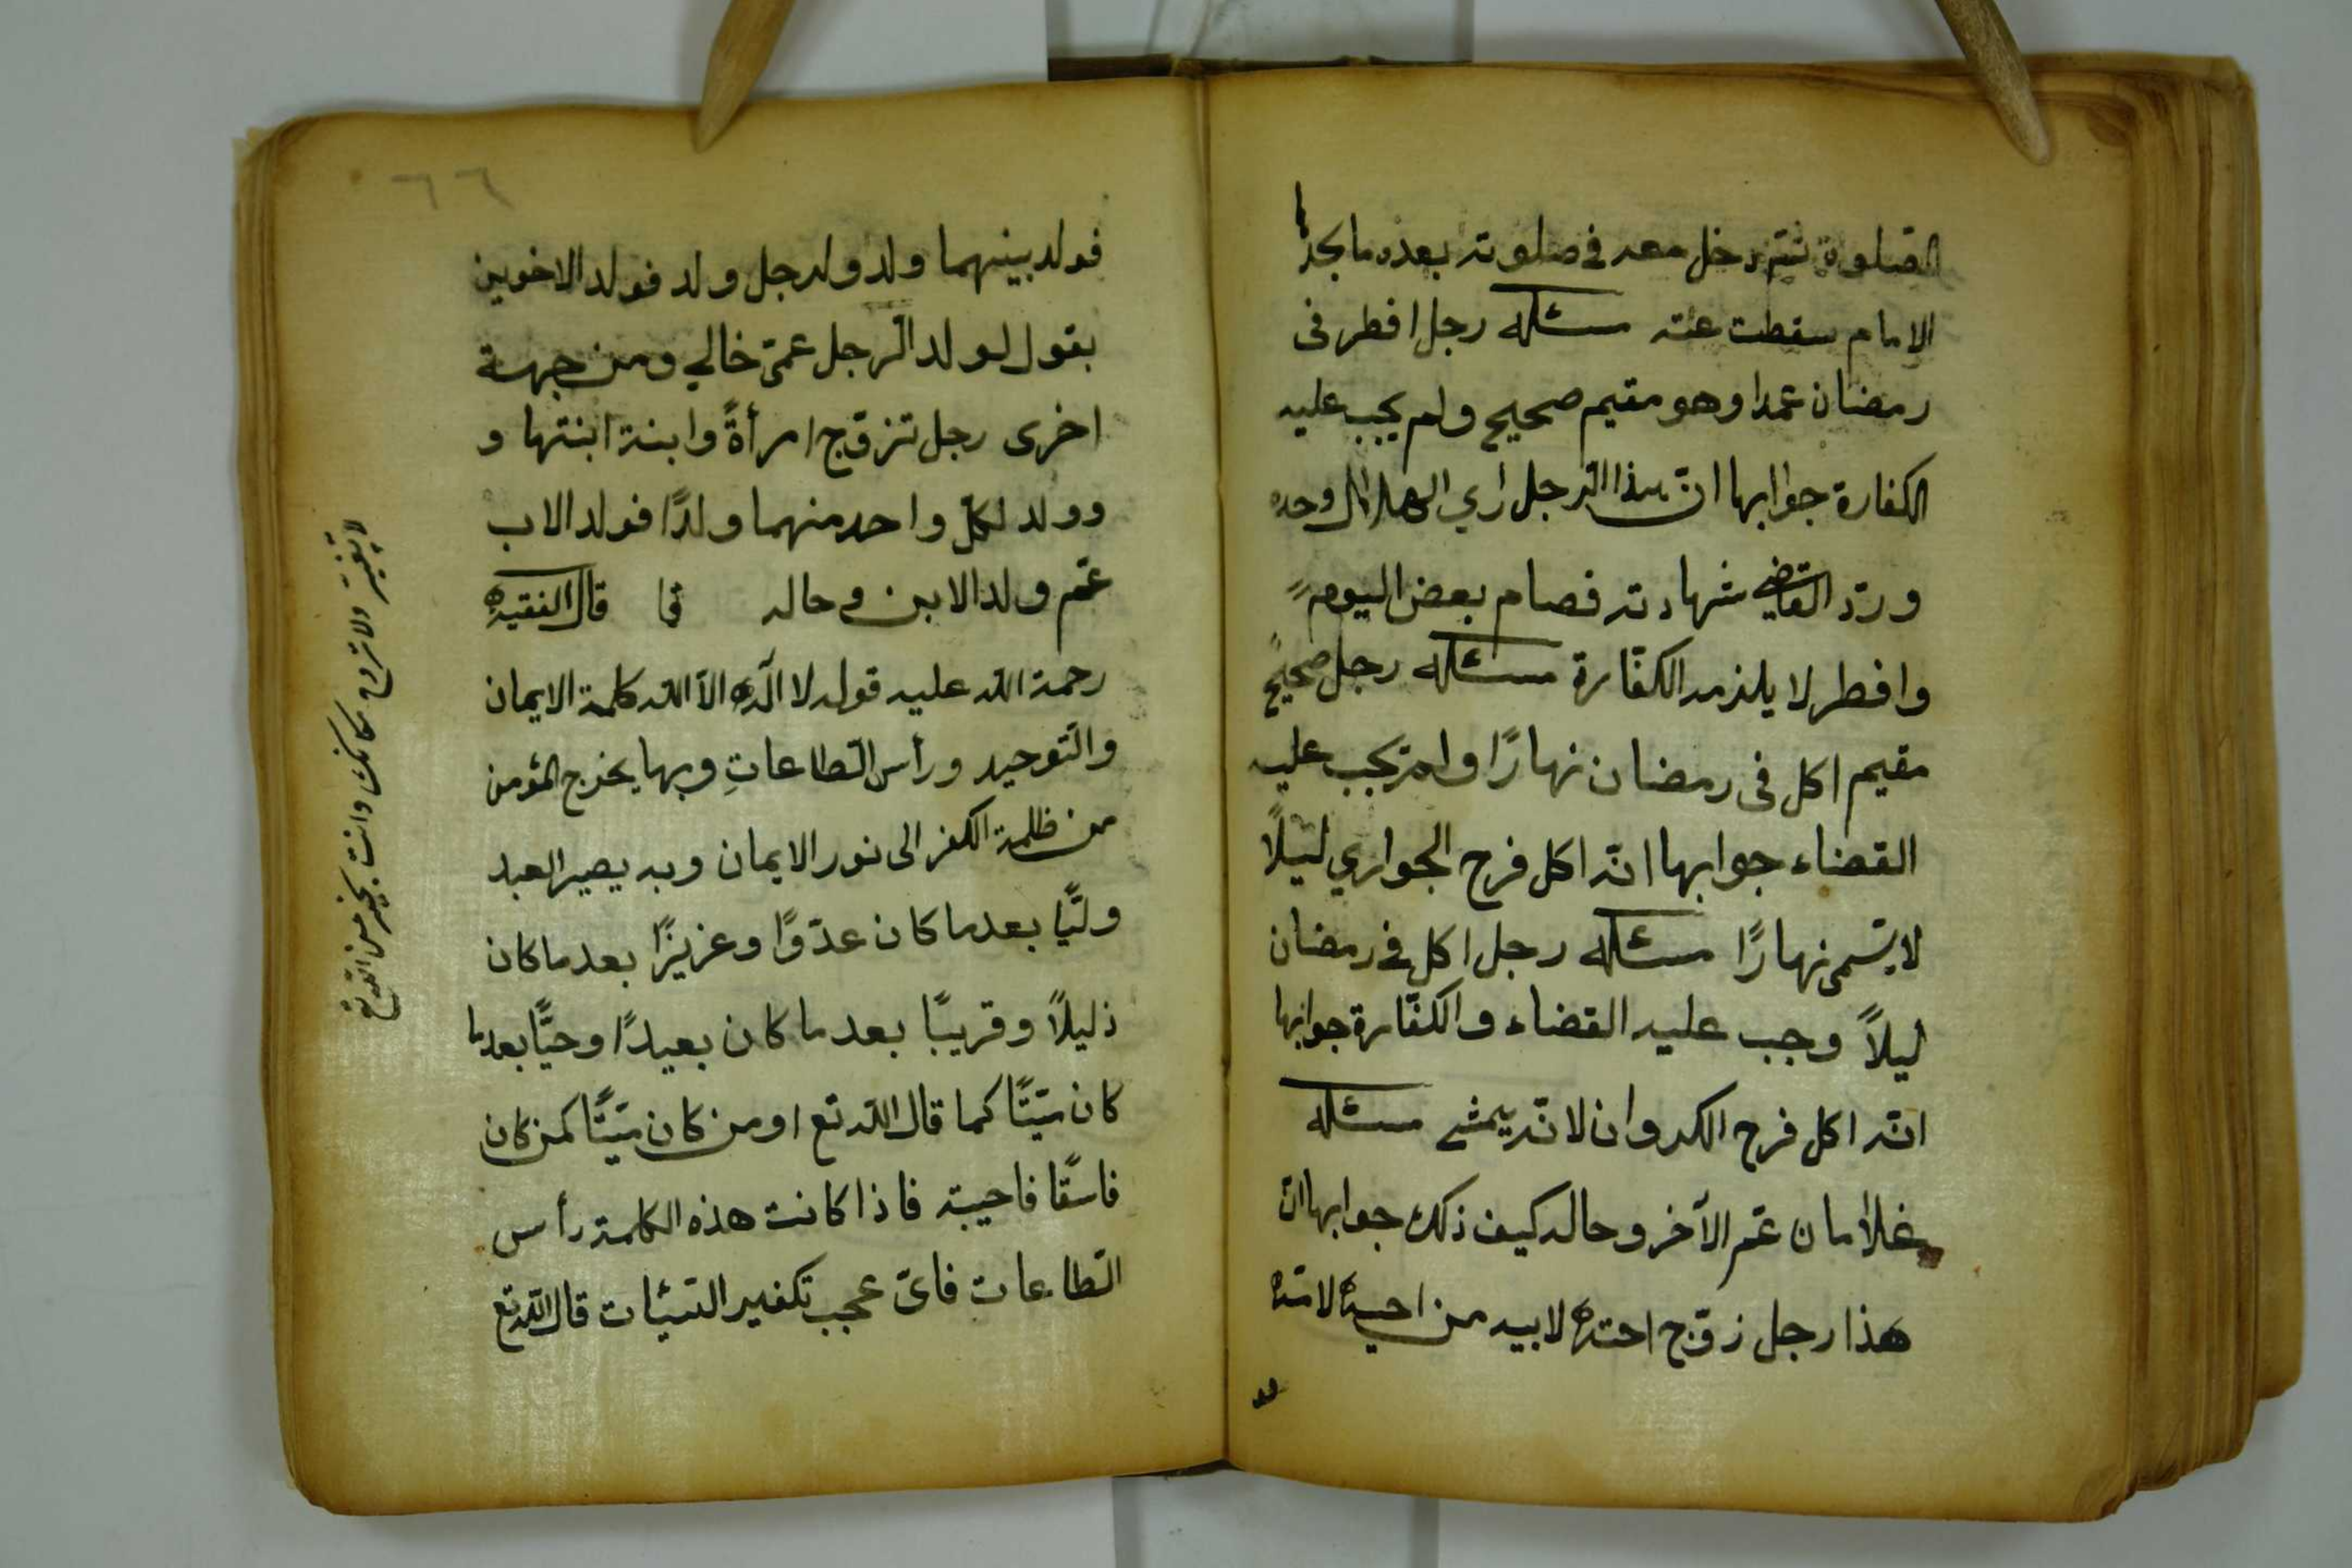 الصلوة ثم دخل معه في صلوته بعده ما
الامام سقطت عنه مسئلة رجل افطر فى
رمضان عمدا وهو مقيم صحيح ولم يجب عليه
الكفارة جوابها انّ هذا الرّجل اري الهلال وحده
وردّ القاضي شهادته فصام بعض اليوم
وافطر لا يلزمه الكفّارة مسئلة رجل صحيح
مقيم اكل فى رمضان نهارًا ولم تجب عليه
القضاء جوابها انّه اكل فرح الجواري ليلًا
لا يسّمى نهارًا مسئلة رجل اكل في رمضان
ليلاً وجب عليه القضاء والكفّارة جوابها
انّه اكل فرح الكروان لانّه يمشي مسئلة
غلامان عم الآخر وحاله كيف ذلك جوابها انّ
هذا رجل زوّج اخته لابيه من اخيه لامّه
٦٦
فولد بينهما ولد ولرجل ولد فولد الاخوين
يقول لولد الرّجل عمّى خالي ومن جهة
اخرى رجل تزوّج امرأةً وابنة ابنتها و
وولد لكلّ واحد منهما ولدًا فولد الاب
عمّ ولد الابن وحاله قال الفقيه
رحمة الله عليه قوله لا اله الاّ الله كلمة الايمان
والتّوحيد ورأس الطّاعاتِ وبها يخرج المؤمن
من ظلمة الكفر الى نور الايمان وبه يصير العبد
وليًّا بعد ما كان عدوًّا وعزيزًا بعد ما كان
ذليلاً وقريبًا بعد ما كان بعيدًا وحيًّا بعد ما
كان ميّتًا كما قال الله تع اومن كان ميّتًا كمن كان
فاسقًا فاحيبته فاذا كانت هذه الكلمة رأس
الطّاعات فاىّ عجب تكفير السّيئات قال الله تع
لا تغيّر ولا مكانك وانت بخير من الله تع